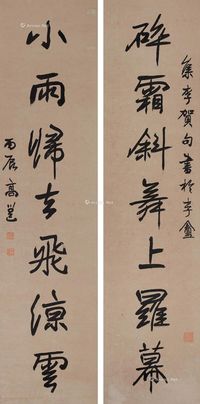 集李賀句書於李盦
碎霜斜舞上羅幕
小雨歸去飛涼雲
丙辰高邕